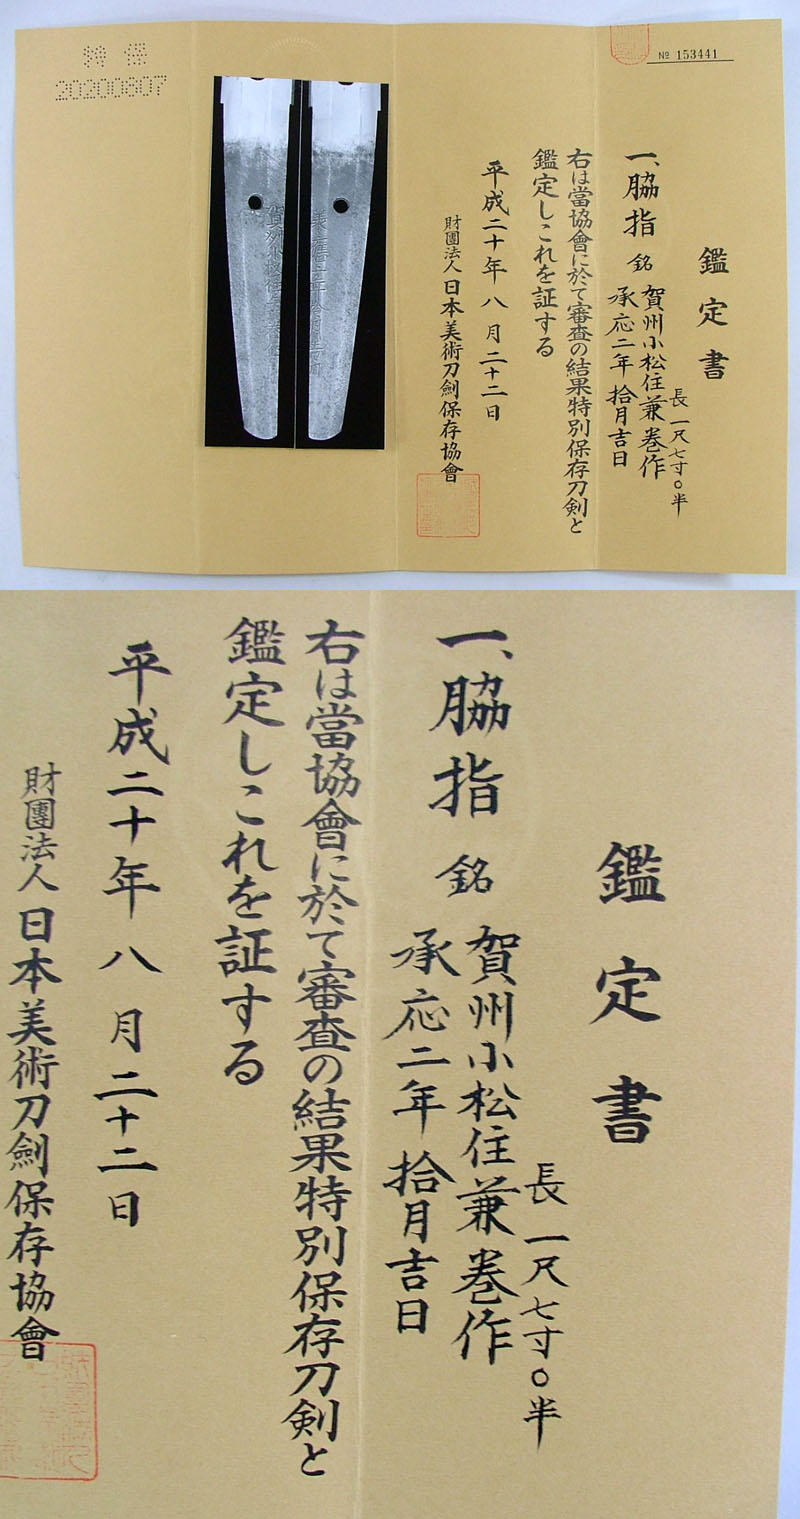 特保
20200807
№ 153441
鑑定書
一、脇指 銘 賀州小松住兼巻作
承応二年拾月吉日
長一尺七寸〇半
右は當協會に於て審査の結果特別保存刀剣と
鑑定しこれを証する
平成二十年八月二十二日
財團法人日本美術刀劍保存協會
鑑定書
長一尺七寸〇半
一、脇指 銘 賀州小松住兼巻作
承応二年拾月吉日
右は當協會に於て審査の結果特別保存刀剣と
鑑定しこれを証する
平成二十年八月二十二日
財團法人日本美術刀劍保存協會